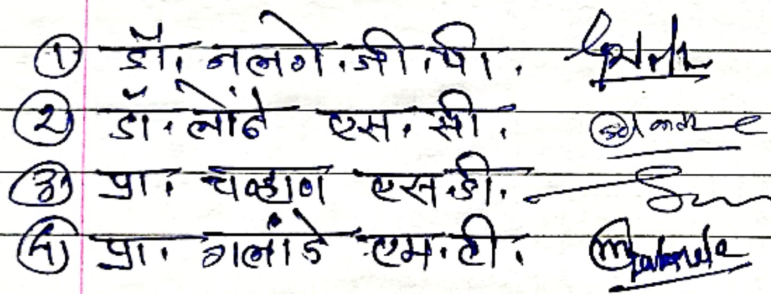 ① डॉ. नलगे. जी. पी.
② डॉ. लोंढे एस. सी.
③ प्रा. चव्हाण एस. डी.
④ प्रा. गलांडे एम. टी.